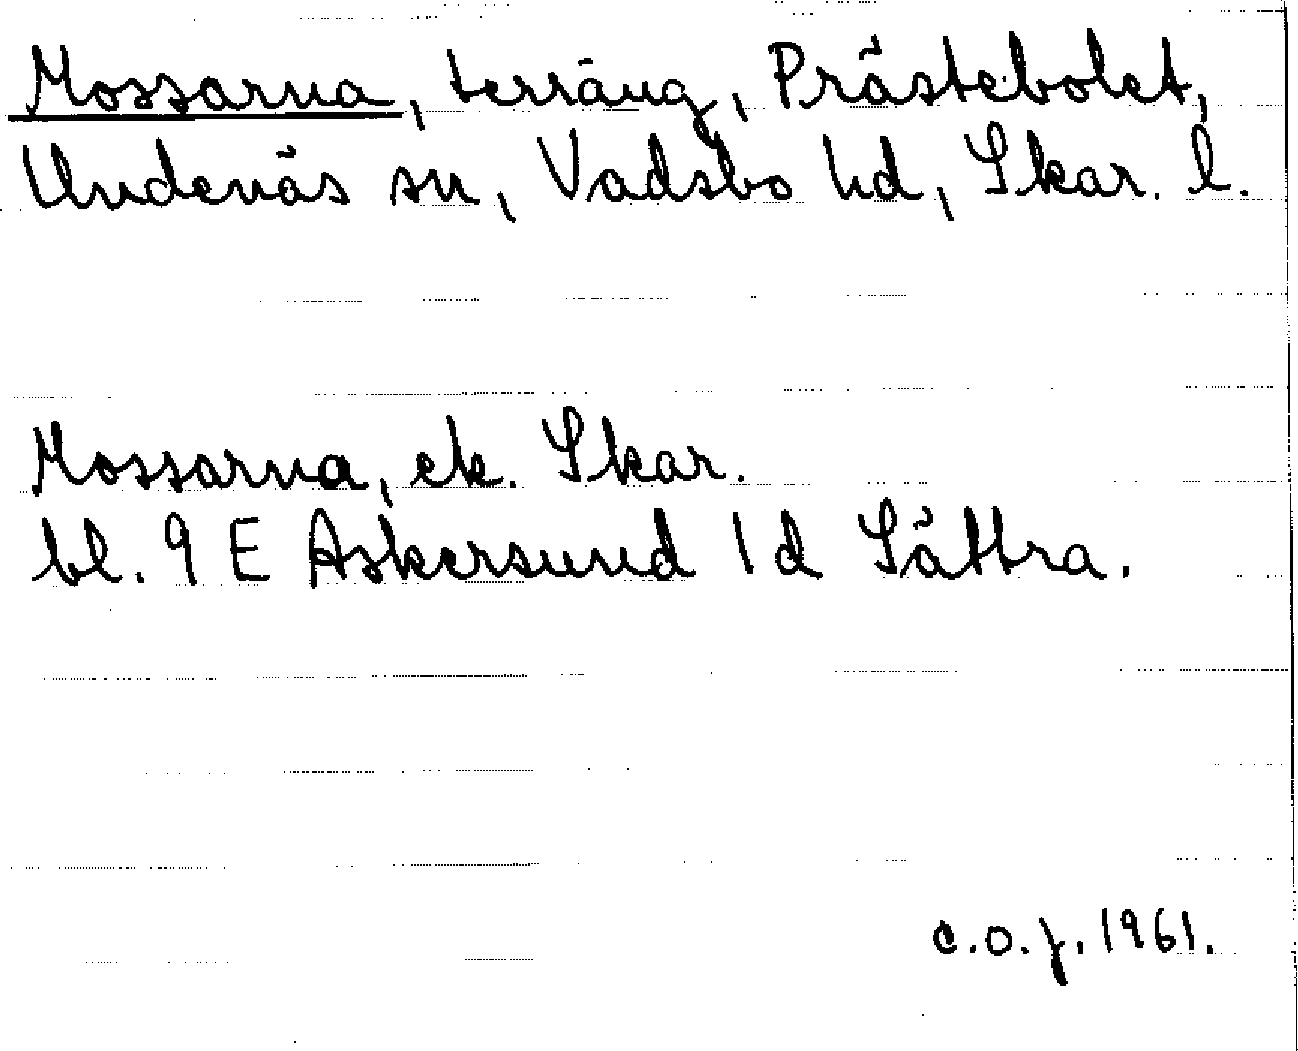 Mossarna, terräng, Prästebolet,
Undenäs sn, Vadsbo hd, Skar. l.
Mossarna, ek. Skar.
bl. 9 E Askersund 1 d Sätra.
C.O.J. 1961.